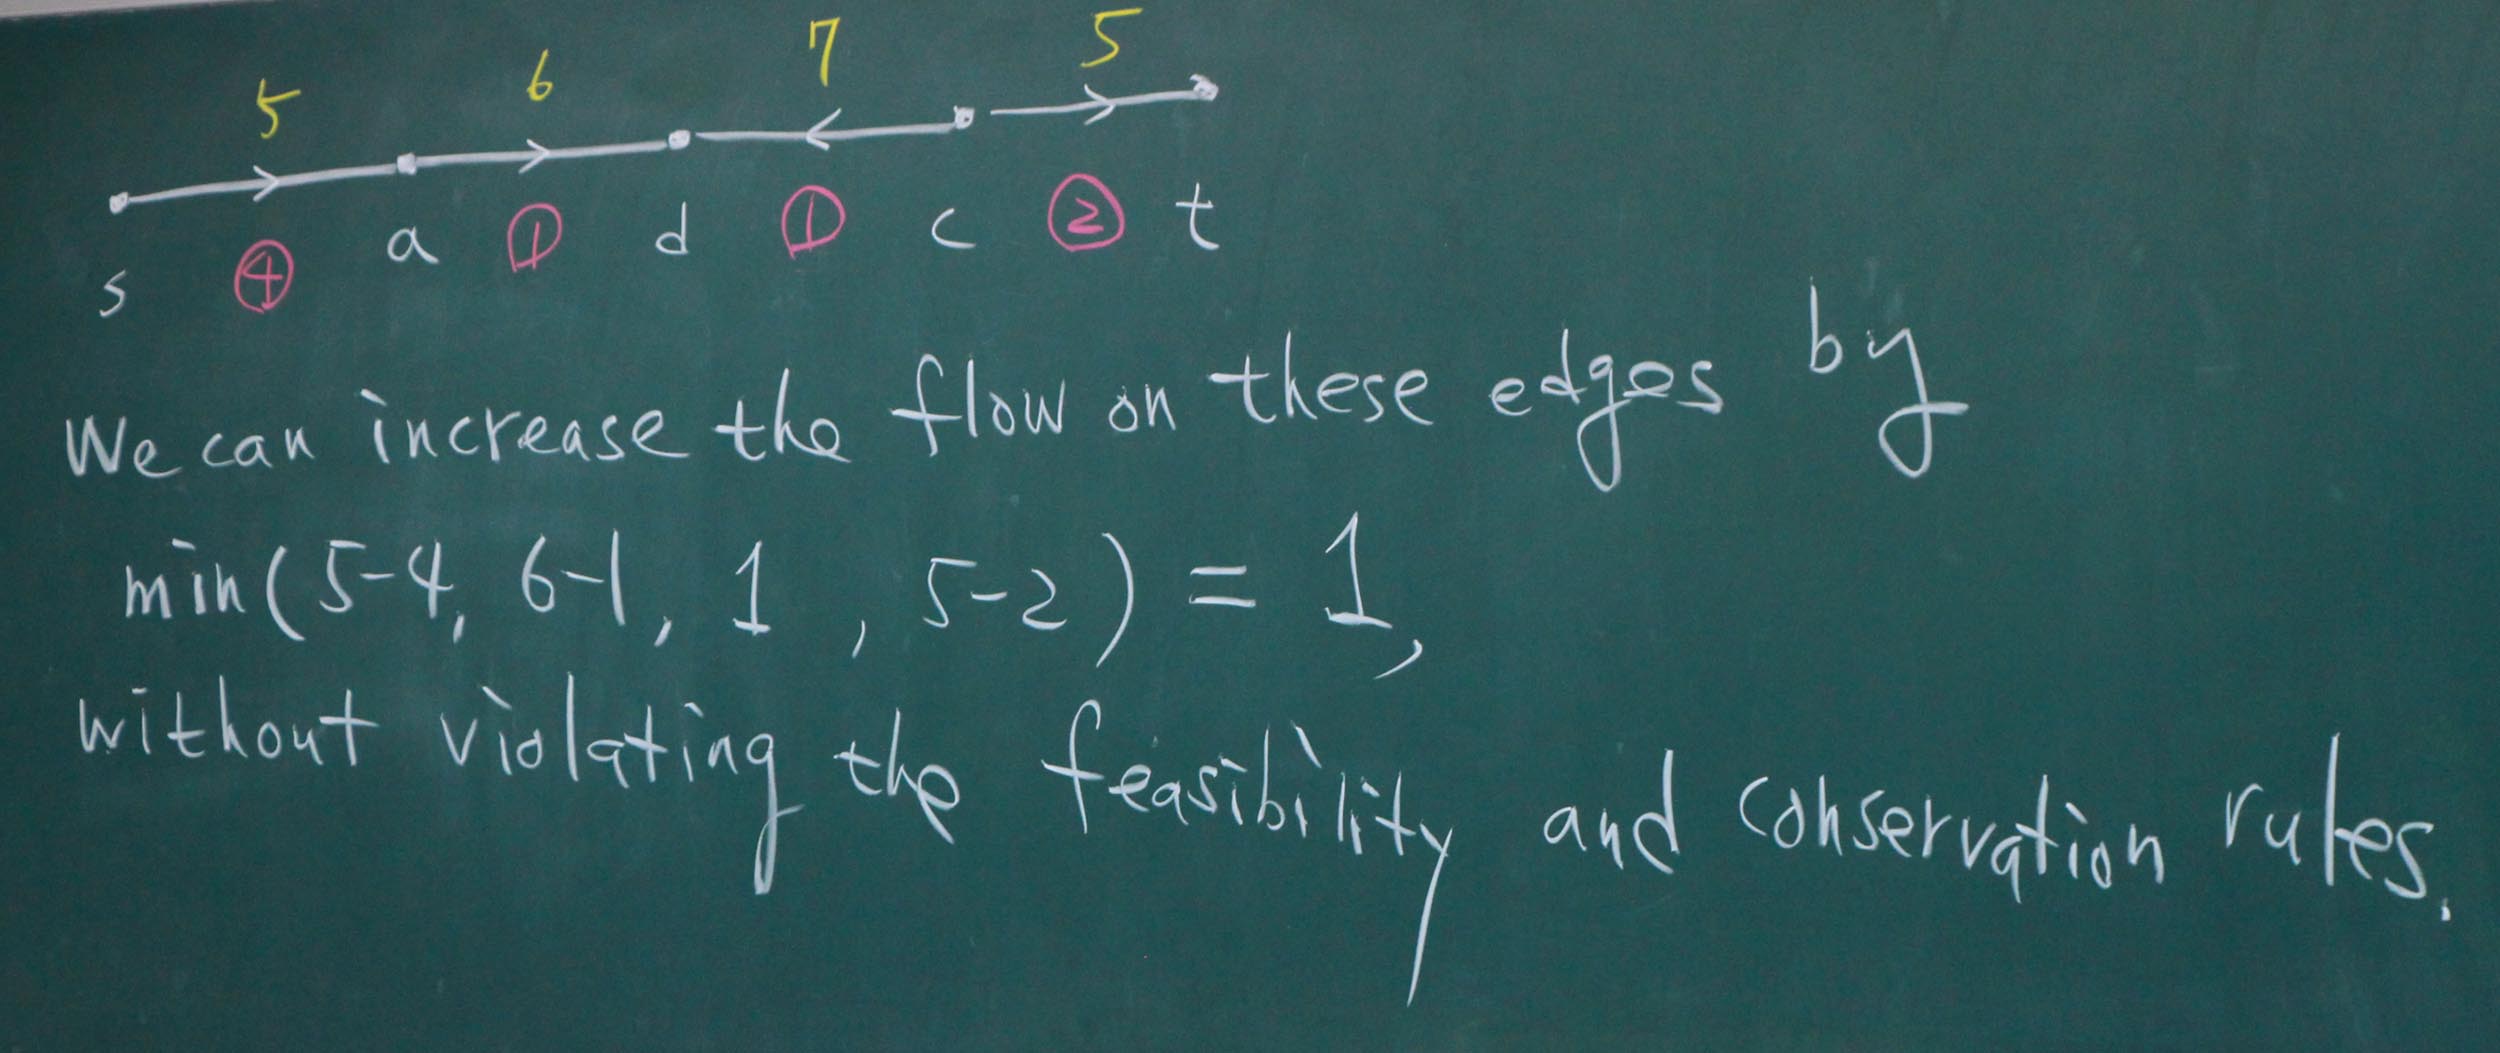 5 6 7 5
s ④ a ① d ① c ② t
We can increase the flow on these edges by
min(5-4, 6-1, 1, 5-2) = 1,
without violating the feasibility and conservation rules.